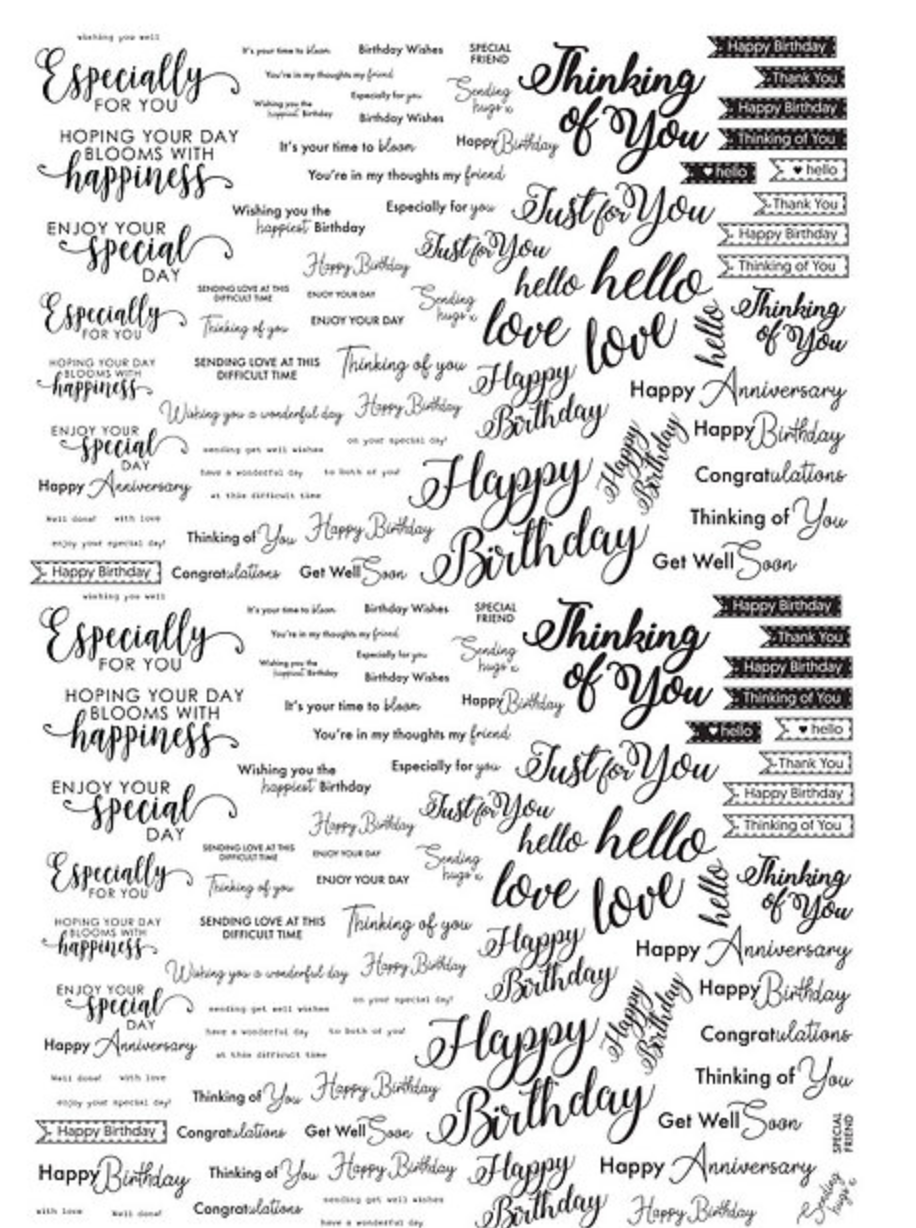 wishing you well
Especially
FOR YOU
It's your time to bloom
Birthday Wishes
SPECIAL
FRIEND
You're in my thoughts my friend
Especially for you
Wishing you the
happiest Birthday
Birthday Wishes
Sending
hugs x
Thinking
of You
Happy Birthday
Thank You
Happy Birthday
Thinking of You
HOPING YOUR DAY
BLOOMS WITH
happiness
It's your time to bloom
Happy Birthday
You're in my thoughts my friend
♥ hello
♥ hello
Wishing you the
happiest Birthday
Especially for you
Just for You
Thank You
Happy Birthday
Thinking of You
ENJOY YOUR
special
DAY
Happy Birthday
Just for You
hello
hello
Especially
FOR YOU
SENDING LOVE AT THIS
DIFFICULT TIME
ENJOY YOUR DAY
Thinking of you
ENJOY YOUR DAY
Sending
hugs x
love
love
hello
Thinking
of You
HOPING YOUR DAY
BLOOMS WITH
happiness
SENDING LOVE AT THIS
DIFFICULT TIME
Thinking of you
Happy
Birthday
Happy Anniversary
Wishing you a wonderful day
Happy Birthday
ENJOY YOUR
special
DAY
sending get well wishes
on your special day!
Happy
Birthday
Happy Birthday
Happy Anniversary
have a wonderful day
to both of you!
at this difficult time
Happy
Birthday
Congratulations
Well done!
with love
enjoy your special day!
Thinking of You
Happy Birthday
Thinking of You
Happy Birthday
Congratulations
Get Well Soon
Get Well Soon
wishing you well
Especially
FOR YOU
It's your time to bloom
Birthday Wishes
SPECIAL
FRIEND
You're in my thoughts my friend
Especially for you
Wishing you the
happiest Birthday
Birthday Wishes
Sending
hugs x
Thinking
of You
Happy Birthday
Thank You
Happy Birthday
Thinking of You
HOPING YOUR DAY
BLOOMS WITH
happiness
It's your time to bloom
Happy Birthday
You're in my thoughts my friend
♥ hello
♥ hello
Wishing you the
happiest Birthday
Especially for you
Just for You
Thank You
Happy Birthday
Thinking of You
ENJOY YOUR
special
DAY
Happy Birthday
Just for You
hello
hello
Especially
FOR YOU
SENDING LOVE AT THIS
DIFFICULT TIME
ENJOY YOUR DAY
Thinking of you
ENJOY YOUR DAY
Sending
hugs x
love
love
hello
Thinking
of You
HOPING YOUR DAY
BLOOMS WITH
happiness
SENDING LOVE AT THIS
DIFFICULT TIME
Thinking of you
Happy
Birthday
Happy Anniversary
Wishing you a wonderful day
Happy Birthday
ENJOY YOUR
special
DAY
sending get well wishes
on your special day!
Happy
Birthday
Happy Birthday
Happy Anniversary
have a wonderful day
to both of you!
at this difficult time
Happy
Birthday
Congratulations
Well done!
with love
enjoy your special day!
Thinking of You
Happy Birthday
Thinking of You
Happy Birthday
Congratulations
Get Well Soon
Get Well Soon
SPECIAL
FRIEND
Happy Birthday
Thinking of You
Happy Birthday
Happy
Birthday
Happy Anniversary
Sending
hugs x
with love
Well done!
Congratulations
sending get well wishes
have a wonderful day
Happy Birthday